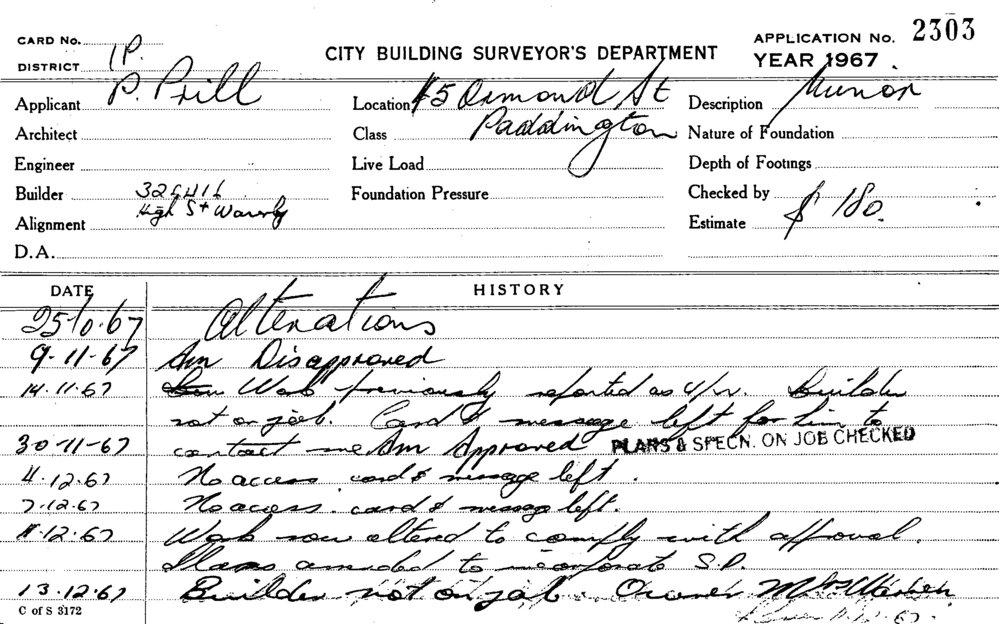 CARD No. 1P.
DISTRICT
CITY BUILDING SURVEYOR'S DEPARTMENT
APPLICATION No. 2303
YEAR 1967
Applicant P. Prill
Location 45 Ormond St
Paddington
Description Minor
Architect
Class
Nature of Foundation
Engineer
Live Load
Depth of Footings
Builder 324416
High St Waverly
Foundation Pressure
Checked by
Alignment
Estimate $ 180.
D.A.
DATE HISTORY
25.10.67 Alterations
9-11-67 Am Disapproved
14.11.67 Work previously reported as u/w. Builder
not on job. Card & message left for him to
30-11-67 contact me Am Approved PLANS & SPECN. ON JOB CHECKED
4.12.67 No access. card & message left.
7.12.67 No access. card & message left.
11.12.67 Work now altered to comply with approval.
Plans amended to incorporate S.P.
13.12.67 Builder not on job. Owner
C of S 3172